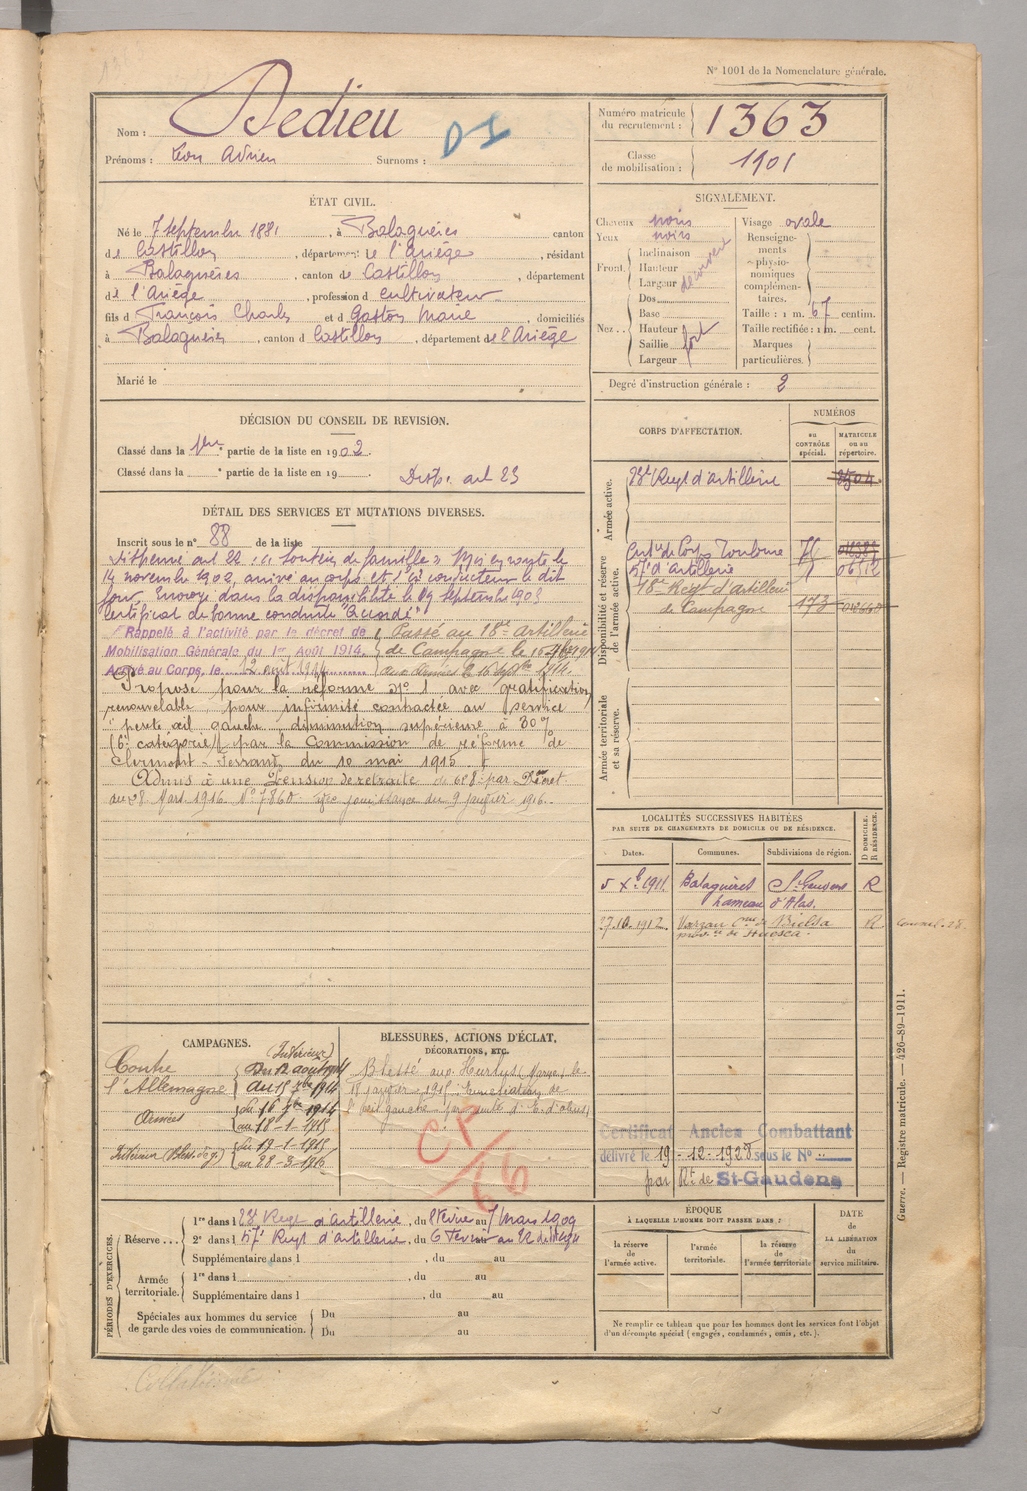 N° 1001 de la Nomenclature générale.
Nom : Dedieu
D1
Prénoms : Léon Adrien Surnoms :
Numéro matricule du recrutement : 1363
Classe de mobilisation : 1901
ÉTAT CIVIL.
Né le 7 septembre 1881, à Balaguères canton
de Castillon, département de l'Ariège, résidant
à Balaguères, canton de Castillon, département
de l'Ariège, profession d cultivateur
fils d François Charles et d Gaston Marie, domiciliés
à Balaguères, canton d Castillon, département de l'Ariège
Marié le
SIGNALEMENT.
Cheveux noirs
Yeux noirs
Front. Inclinaison
Hauteur
Largeur
découvert
Nez.. Dos
Base
Hauteur
Saillie
Largeur
fort
Visage ovale
Renseignements physionomiques complémentaires.
Taille : 1 m. 67 centim.
Taille rectifiée : 1 m. cent.
Marques particulières.
Degré d'instruction générale : 2
DÉCISION DU CONSEIL DE REVISION.
Classé dans la 1ère partie de la liste en 1902.
Classé dans la ° partie de la liste en 19
Disp. art 23
DÉTAIL DES SERVICES ET MUTATIONS DIVERSES.
Inscrit sous le n° 88 de la liste
Dispensé art 22 "Soutien de famille" Mis en route le
14 novembre 1902, arrivé au corps et 2e cr conducteur le dit
jour. Envoyé dans la disponibilité le 19 septembre 1903
Certificat de bonne conduite "Accordé"
Rappelé à l'activité par le décret de
Mobilisation Générale du 1er Août 1914.
Arrivé au Corps, le 12 août 1914
Passé au 18e Artillerie
de Campagne le
aux Armées le 16 Septbre 1914.
Proposé pour la réforme N° 1 avec gratification
renouvelable, pour infirmité contractée au service
"perte œil gauche diminution supérieure à 30%
(6e catégorie) par la Commission de réforme de
Clermont-Ferrand, du 10 mai 1915.
Admis à une Pension de retraite de 608f par Décret
du 28 Mars 1916 N° 7860 avec jouissance du 9 janvier 1916.
CORPS D'AFFECTATION.
NUMÉROS
au CONTRÔLE spécial.
MATRICULE ou au répertoire.
Armée active.
23e Regt d'artillerie
Disponibilité et réserve de l'armée active.
57e d'artillerie
18e Regt d'Artillerie
de Campagne 173
Armée territoriale et sa réserve.
LOCALITÉS SUCCESSIVES HABITÉES
PAR SUITE DE CHANGEMENTS DE DOMICILE OU DE RÉSIDENCE.
Dates. Communes. Subdivisions de région. D DOMICILE. R RÉSIDENCE.
5 Xbre 1911. Balaguères St-Gaudens R
hameau d'Alas.
27.10.1912. Bielsa R
prov.ce de Huesca.
CAMPAGNES.
Contre l'Allemagne
(Intérieur)
Du 12 août 1914
au 15 7bre 1914
Armées
du 16 7bre 1914
au 18-1-1915
Intérieur (Bless. de g.)
du 19-1-1915
au 28-3-1916
BLESSURES, ACTIONS D'ÉCLAT,
DÉCORATIONS, ETC.
Blessé aux Hurlus (Marne) le
18 janvier 1915. Enucléation de
l'œil gauche par suite d'E. d'obus
CP/66
Certificat Ancien Combattant
délivré le 19-12-1928 sous le N°
par Rt de St-Gaudens
PÉRIODES D'EXERCICES.
Réserve...
1re dans l 23e Regt d'artillerie, du 8 Février au 7 Mars 1909
2e dans l 57e Regt d'artillerie, du 6
Supplémentaire dans l , du au
Armée territoriale.
1re dans l , du au
Supplémentaire dans l , du au
Spéciales aux hommes du service de garde des voies de communication.
Du au
Du au
ÉPOQUE
À LAQUELLE L'HOMME DOIT PASSER DANS :
la réserve de l'armée active.
l'armée territoriale.
la réserve de l'armée territoriale
DATE de LA LIBÉRATION du service militaire.
Ne remplir ce tableau que pour les hommes dont les services font l'objet
d'un décompte spécial (engagés, condamnés, omis, etc.).
Guerre. — Registre matricule. — 426-89-1911.
Collationné